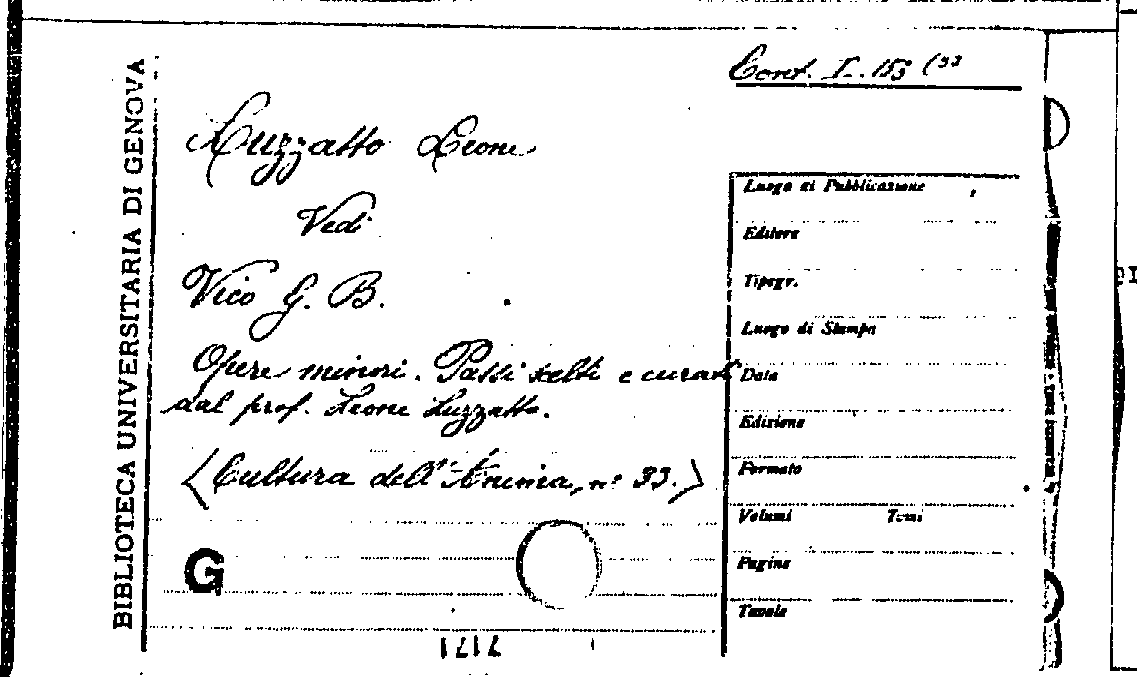 BIBLIOTECA UNIVERSITARIA DI GENOVA
Cont. I. 153 (33
Luzzatto Leone
Vedi
Vico G. B.
Opere minori. Passi scelti e curati
dal prof. Leone Luzzatto.
(Cultura dell'Anima, n° 33.)
G
Luogo di Pubblicazione
Editore
Tipogr.
Luogo di Stampa
Data
Edizione
Formato
Volumi Tomi
Pagine
Tavole